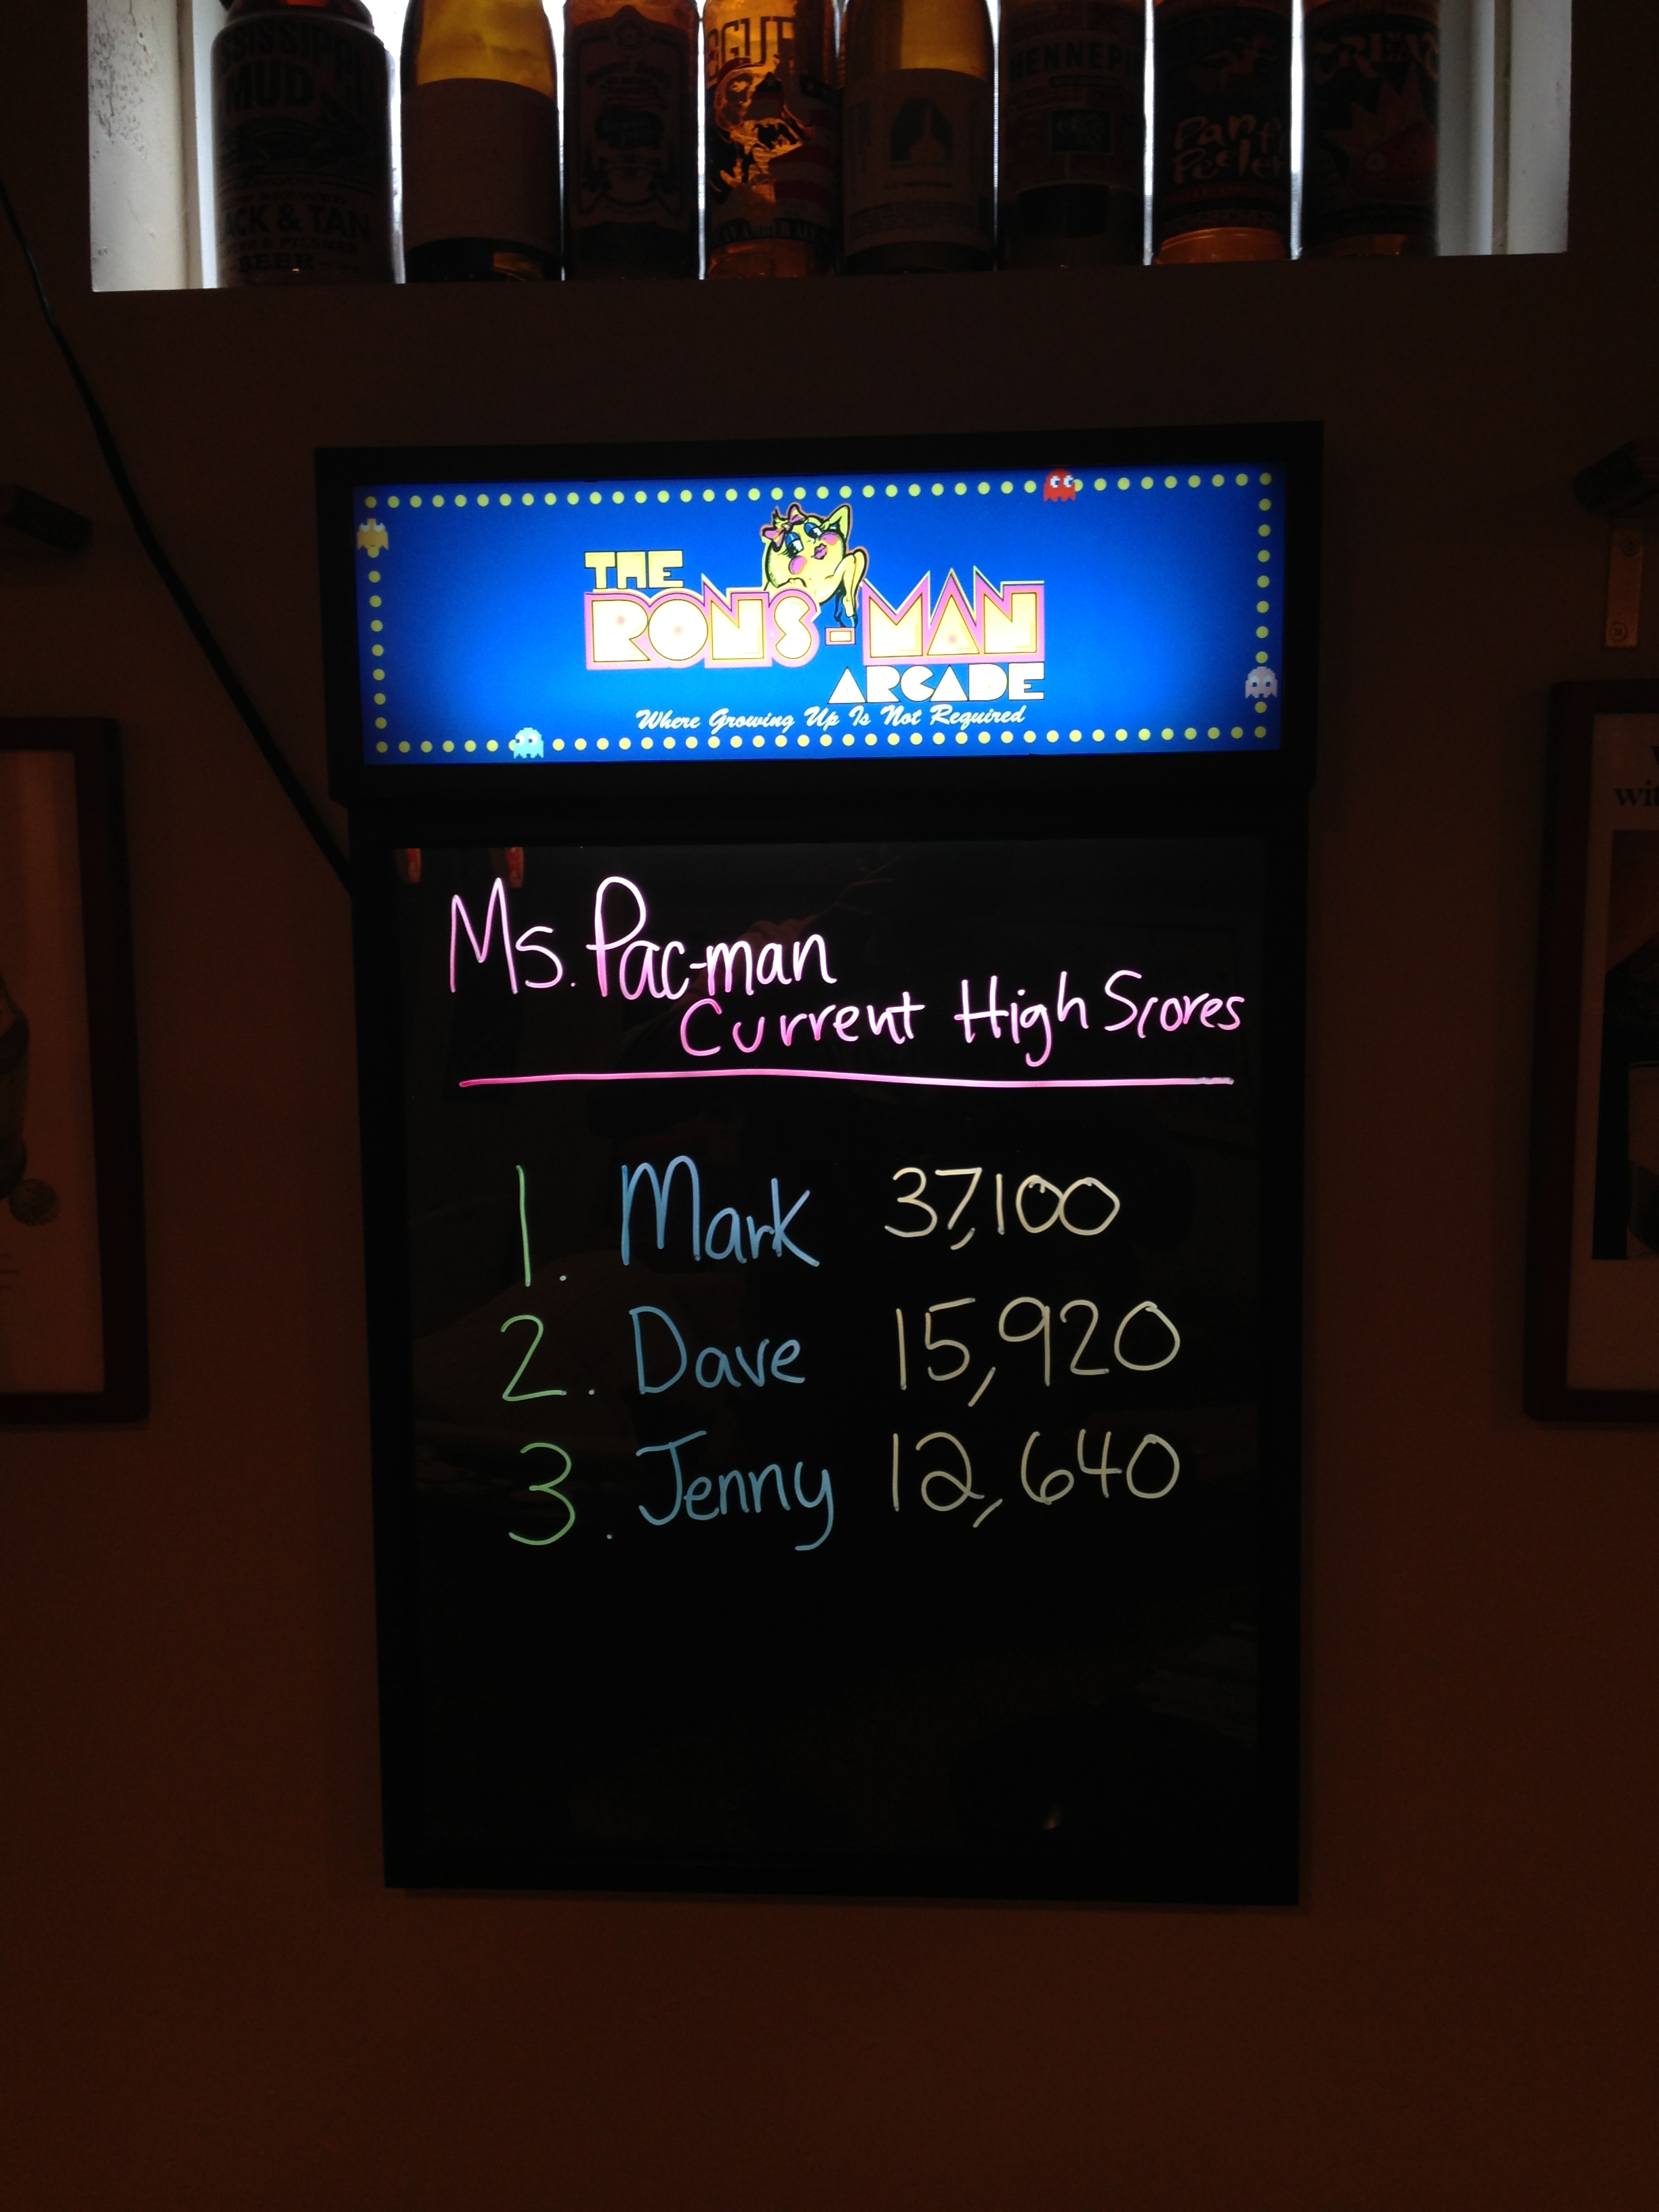 MUD
ACK & TAN
BEER
HENNEPI
THE
RONS-MAN
ARCADE
Where Growing Up Is Not Required
Ms. Pac-man
Current High Scores
1. Mark 37,100
2. Dave 15,920
3. Jenny 12,640